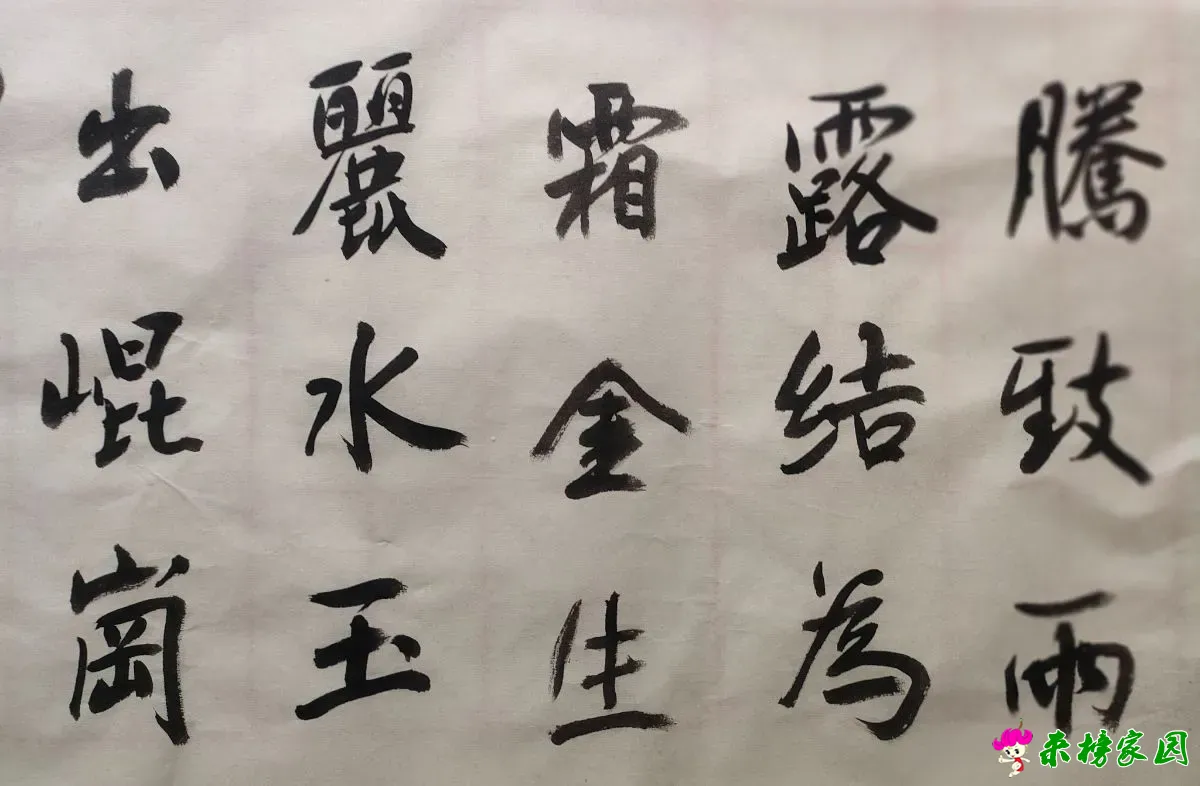 騰致雨
露結為
霜金生
麗水玉
出崐崗
来榜家园